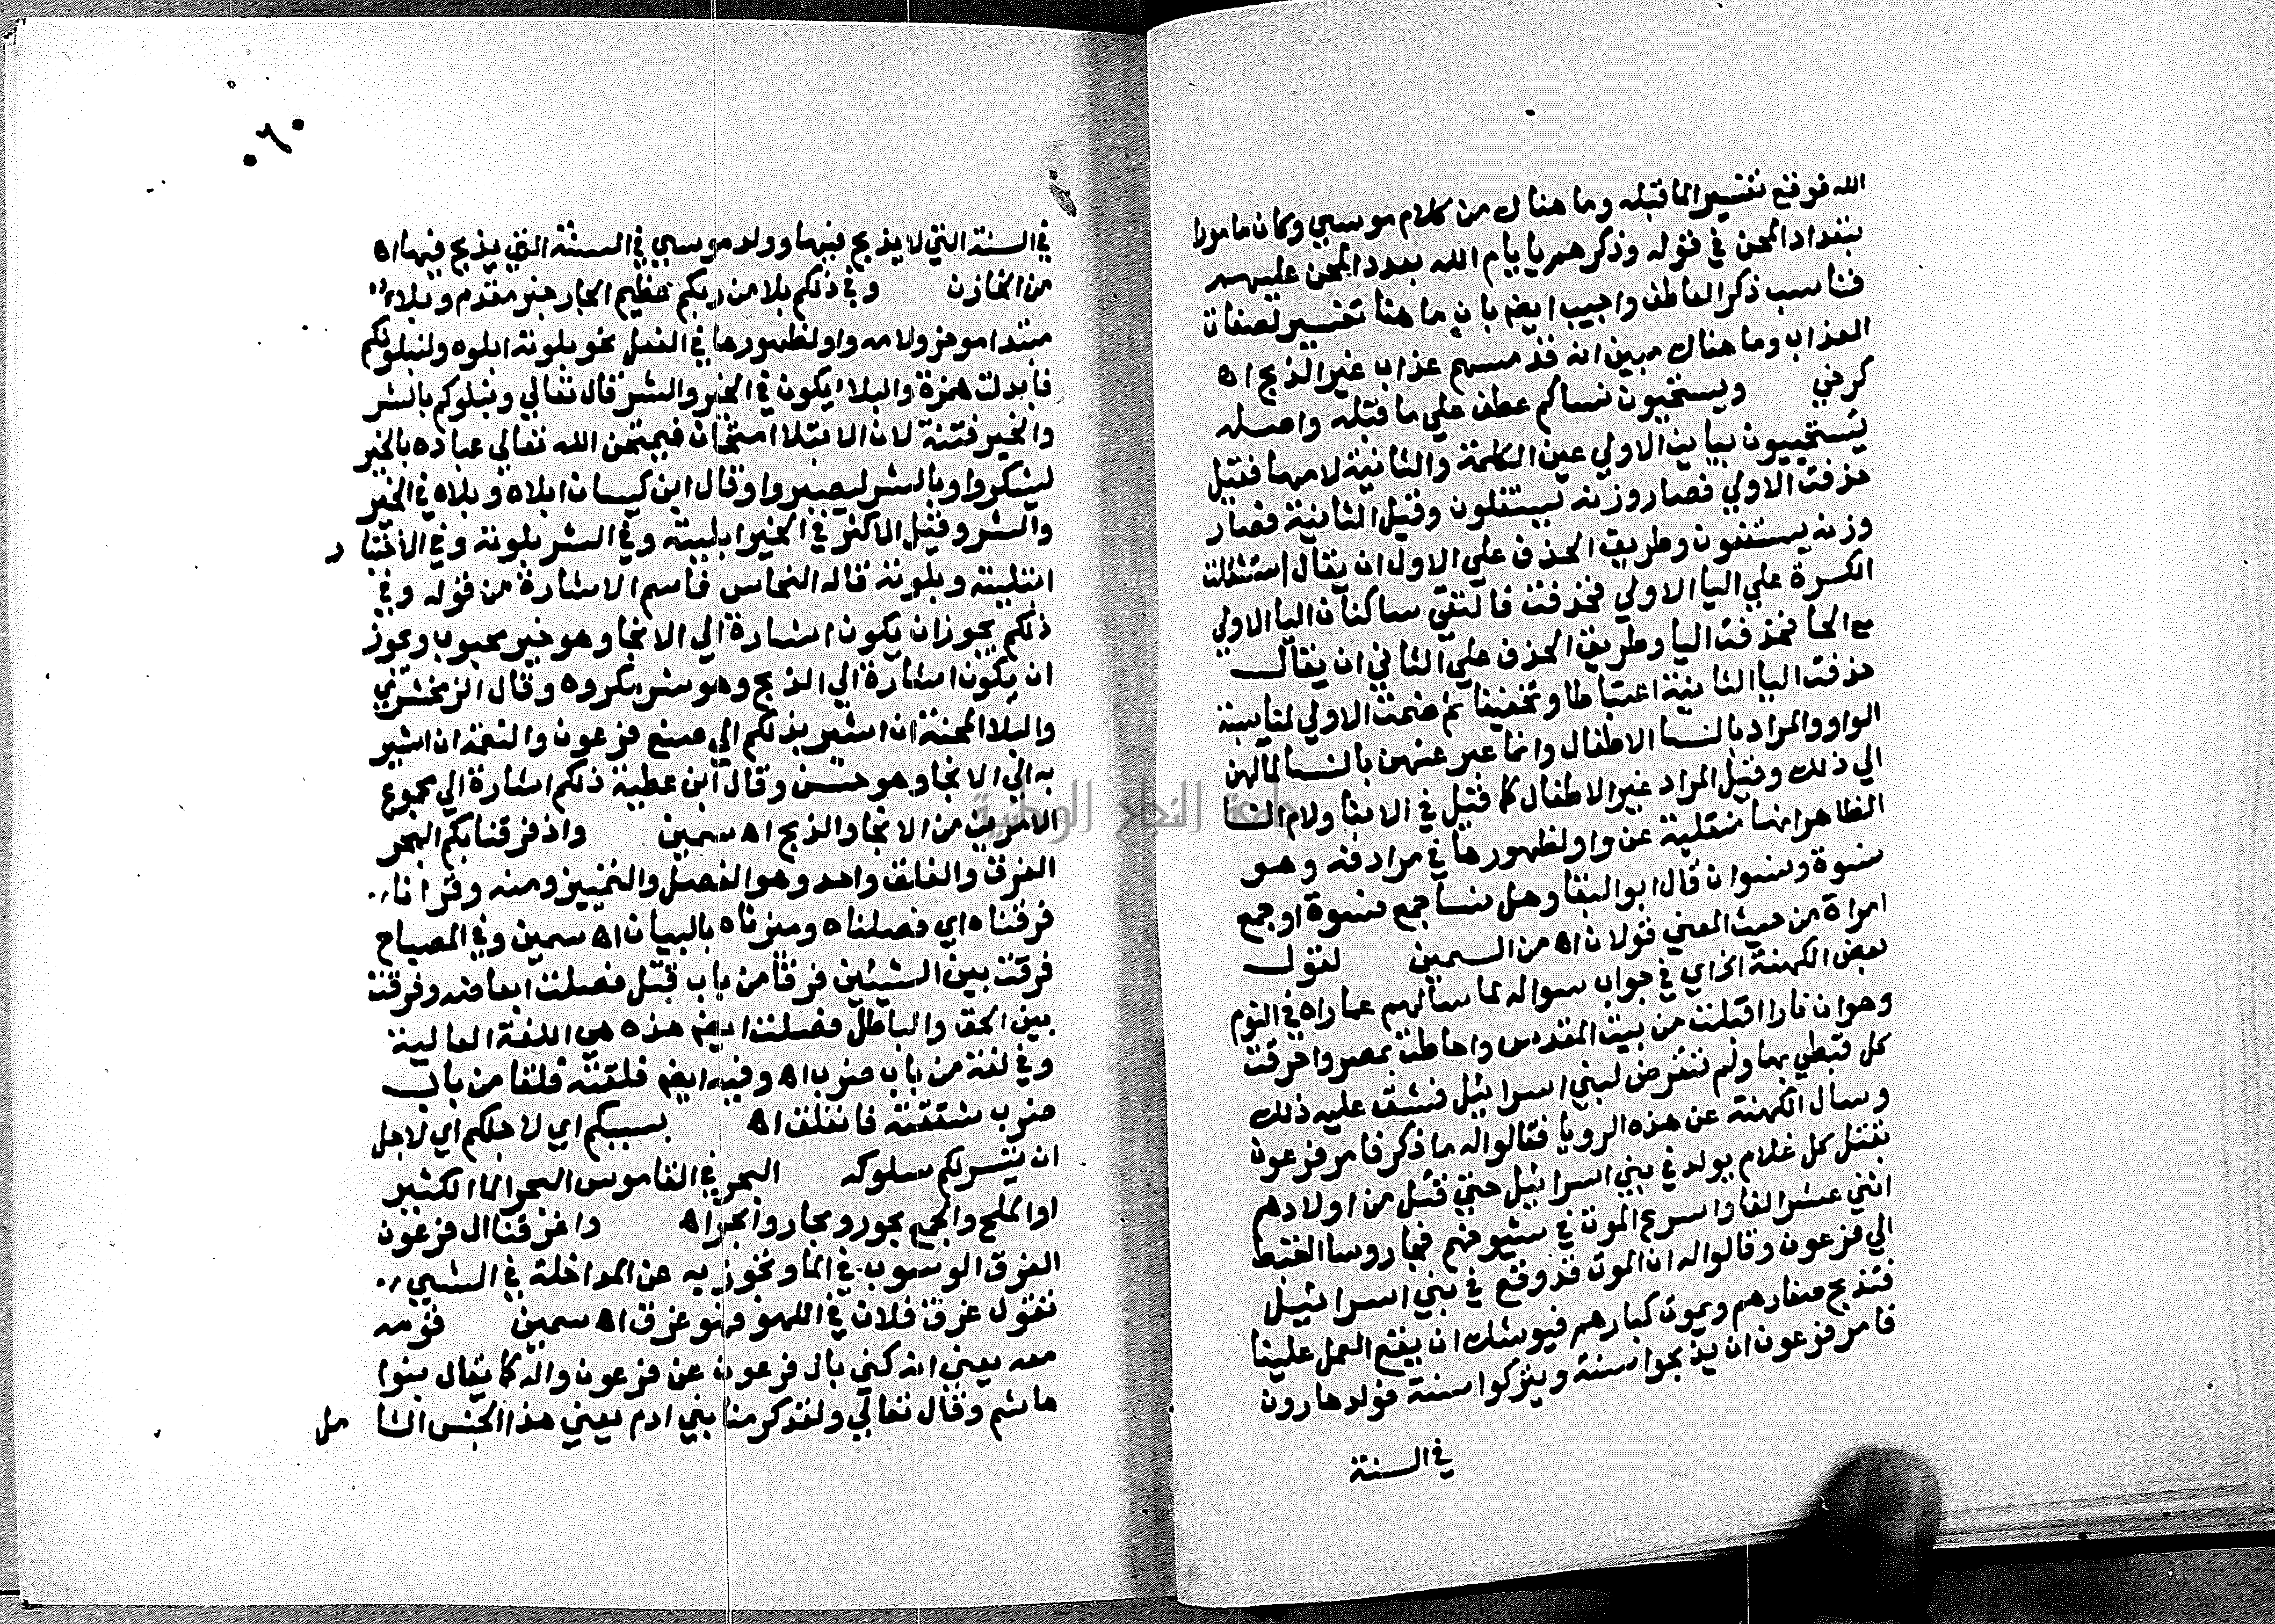 الله فوقع تفسيرا لما قبله وما هناك من كلام موسي وكان مامورا
بتعداد المحن في قوله وذكرهم بايام الله بعدد المحن عليهم
فناسب ذكر العاطف واجيب ايضم بان ما هنا تفسير لصفات
العذاب وما هناك مبين انه قد مسهم عذاب غير الذبح اه
كرخي ويستحيون نساكم عطف علي ما قبله واصله
يستحييون بيايين الاولي عين الكلمة والثانية لامها فقيل
حذفت الاولي فصار وزنه يستفلون وقيل الثانية فصار
وزنه يستفعون وطريق الحذف علي الاول ان يقال استثقلت
الكسرة علي اليا الاولي فحذفت فالتقي ساكنان اليا الاولي
مع الحا فحذفت اليا وطريق الحذف علي الثاني ان يقال
حذفت اليا الثانية اعتباطا وتخفيفا ثم ضمت الاولي لمناسبة
الواو والمراد بالنسا الاطفال وانما عبر عنهن بالنسا لمالهن
الي ذلك وقيل المراد غير الاطفال كما قيل في الابنا ولام النسا
الظاهر انها منقلبة عن واو لظهورها في مرادفه وهو
نسوة ونسوان قال ابو البقا وهل نسا جمع نسوة او جمع
امراة من حيث المعني قولان اه من السمين لقول
بعض الكهنة الخ اي في جواب سواله لما سالهم عما راه في النوم
وهو ان نارا اقبلت من بيت المقدس واحاطت بمصر واحرقت
كل قبطي بها ولم تتعرض لبني اسرائيل فشق عليه ذلك
وسال الكهنة عن هذه الرويا فقالوا له ما ذكر فامر فرعون
بقتل كل غلام يولد في بني اسرائيل حتي قتل من اولادهم
اثني عشر الفا واسرع الموت في شيوخهم فجا روسا القبط
الي فرعون وقالوا له ان الموت قد وقع في بني اسرائيل
فتذبح صغارهم ويموت كبارهم فيوشك ان يقع العمل علينا
فامر فرعون ان يذبحوا سنة ويتركوا سنة فولد هارون
في السنة
٦٠
في السنة التي لا يذبح فيها وولد موسي في السنة التي يذبح فيها اه
من الخازن وفي ذلكم بلا من ربكم عظيم الجار خبر مقدم وبلاء
مبتدا موخر ولامه واو لظهورها في الفعل نحو بلوته ابلوه ولنبلونكم
فابدلت همزة والبلاء يكون في الخير والشر قال تعالي ونبلوكم بالشر
والخير فتنة لان الابتلا امتحان فيمتحن الله تعالي عباده بالخير
ليشكروا وبالشر ليصبروا وقال ابن كيسان ابلاه وبلاه في الخير
والشر وقيل الاكثر في الخير ابليته وفي الشر بلوته وفي الاختبار
ابتليته وبلوته قاله النحاس فاسم الاشارة من قوله وفي
ذلكم يجوز ان يكون اشارة الي الانجا وهو خير محبوب ويجوز
ان يكون اشارة الي الذبح وهو شر مكروه وقال الزمخشري
والبلا المحنة ان اشير بذلكم الي صنع فرعون والنعمة ان اشير
به الي الانجا وهو حسن وقال ابن عطية ذلكم اشارة الي مجموع
الامرين من الانجا والذبح اه سمين واذ فرقنا بكم البحر
الفرق والفلق واحد وهو الفصل والتمييز ومنه وقرانا
فرقناه اي فصلناه وميزناه بالبيان اه سمين وفي المصباح
فرقت بين الشيئين فرقا من باب قتل فصلت ابعاضه وفرقت
بين الحق والباطل فصلت ايضم هذه هي اللغة العالية
وفي لغة من باب ضرب اه وفيه ايضم فلقته فلقا من باب
ضرب شققته فانفلق اه بسببكم اي لاجلكم اي لاجل
ان يتسر لكم سلوكه البحر في القاموس البحر الما الكثير
او الملح والجمع بحور وبحار وابحر اه واغرقنا ال فرعون
الغرق الرسوب في الما وتجوز به عن المداخلة في الشيء
تقول غرق فلان في اللهو فهو غرق اه سمين قومه
معه يعني انه كني بال فرعون عن فرعون واله كما يقال بنوا
هاشم وقال تعالي ولقد كرمنا بني ادم يعني هذا الجنس الشا مل
جامعة النجاح الوطنية